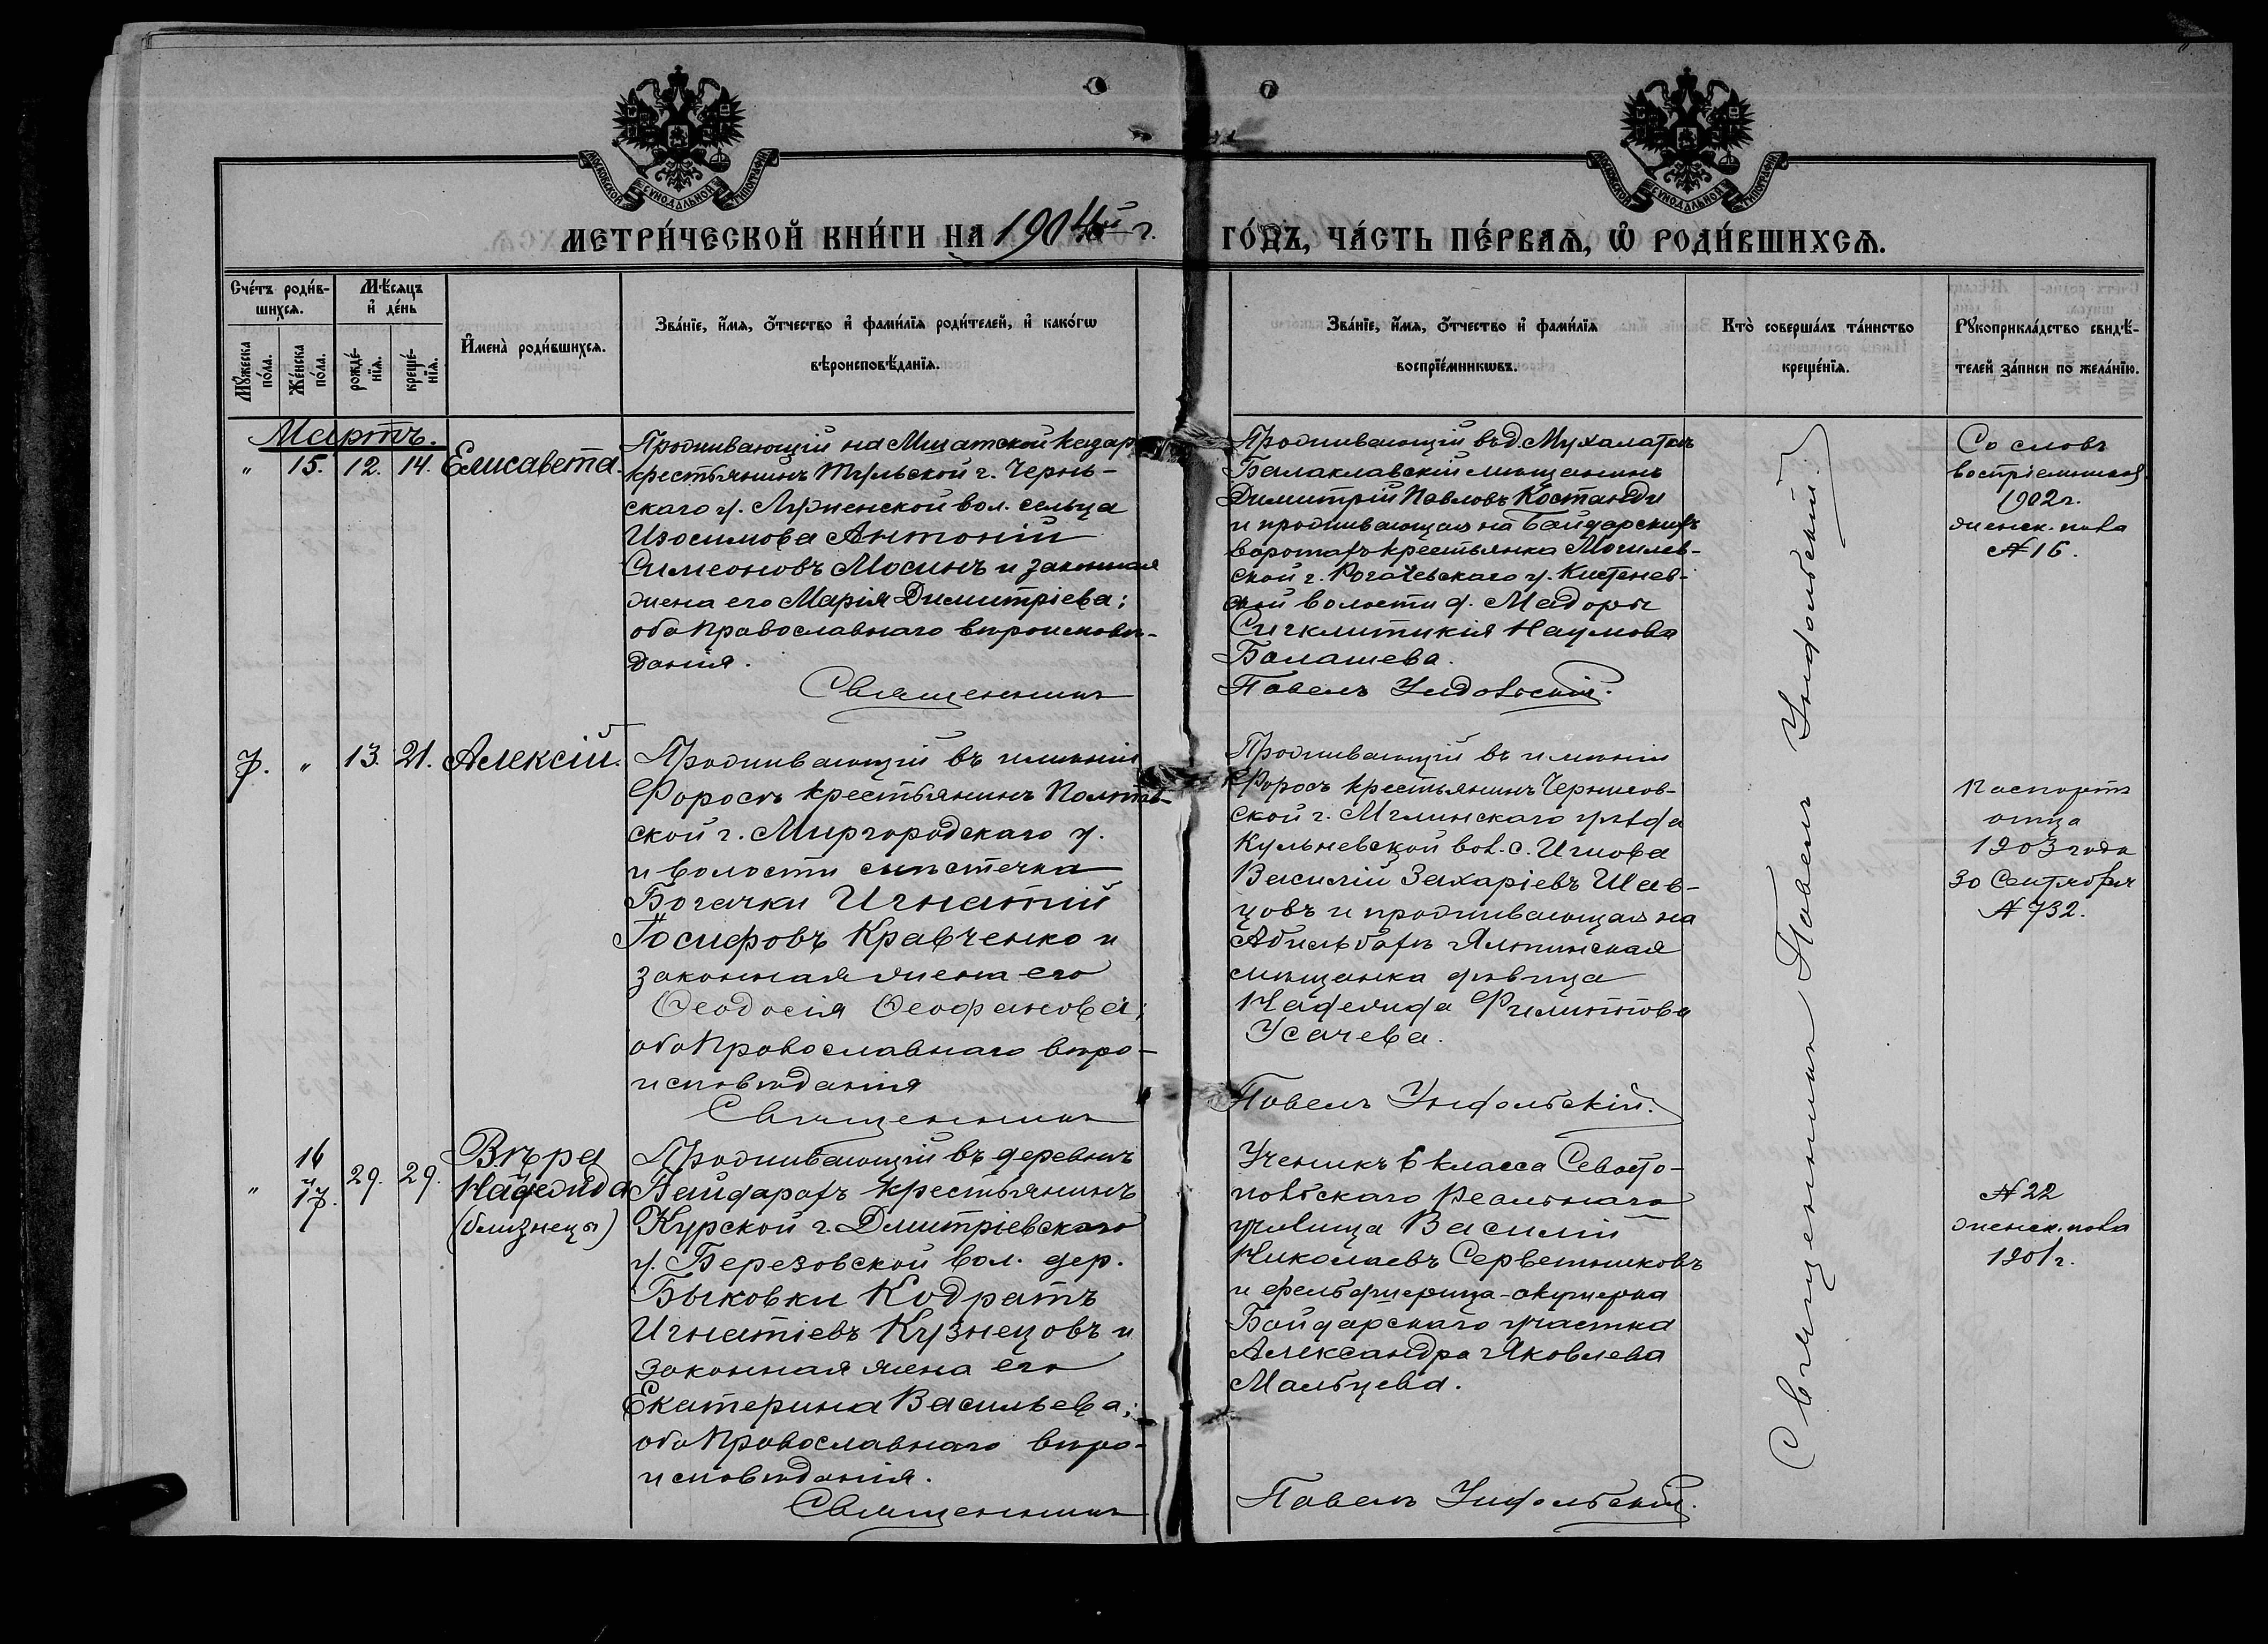 МОСКОВСКОЙ СѴНОДАЛЬНОЙ ТИПОГРАФІИ
МОСКОВСКОЙ СѴНОДАЛЬНОЙ ТИПОГРАФІИ
МЕТРИ́ЧЕСКОЙ КНИ́ГИ НА 1904ый г.
ГО́ДЪ, ЧА́СТЬ ПЕ́РВАѦ, Ѡ҆ РОДИ́ВШИХСѦ.
Сче́тъ роди́в-
шихсѧ.
Мꙋ́жеска
по́ла.
Же́нска
по́ла.
Мѣ́сѧцъ
и҆ де́нь
рожде́-
нїѧ.
креще́-
нїѧ.
И҆мена̀ роди́вшихсѧ.
Зва́нїе, и҆́мѧ, ѻ҆́тчество и҆ фами́лїѧ роди́телей, и҆ како́гѡ
вѣроисповѣ́данїѧ.
Зва́нїе, и҆́мѧ, ѻ҆́тчество и҆ фами́лїѧ
воспрїе́мникѡвъ.
Кто̀ соверша́лъ та́инство
креще́нїѧ.
Рꙋкоприкла́дство свидѣ́-
телей за́писи по жела́нїю.
Мартъ.
" 15. 12. 14. Елисавета.
Проживающій на Мшатской казар
крестьянинъ Тульской г. Чернь-
скаго у. вол. сельца
Изосимова Антоній
Симеоновъ Мосинъ и законная
жена его Марія Димитріева;
оба Православнаго вѣроисповѣ-
данія.
Священникъ
Проживающій въ д. Мухалаткѣ
Балаклавскій мѣщанинъ
Димитрій Павловъ Костанди
и проживающая на Байдарскихъ
воротахъ крестьянка Могилев-
ской г. Рогачевскаго у. Кистенев-
ской волости д. Мадоры
Сигклитикія Наумова
Балашева.
Павелъ Ундольскій.
Со словъ
воспріемников
1902 г.
женск. пола
№ 16.
7. " 13. 21. Алексій.
Проживающій въ имѣніи
Форосъ крестьянинъ Полтав-
ской г. Миргородскаго у.
и волости мѣстечка
Богачки Игнатій
Іосифовъ Кравченко и
законная жена его
Ѳеодосія Ѳеофанова;
оба Православнаго вѣро-
исповѣданія
Священникъ
Проживающій въ имѣніи
Форосъ крестьянинъ Чернигов-
ской г. Мглинскаго уѣзда
Кульневской вол. с.
Василій Захаріевъ Шев-
цовъ и проживающая на
Ялтинская
мѣщанка дѣвица
Надежда Филиппова
Усачева.
Павелъ Ундольскій.
Паспортъ
отца
1903 года
30 Сентября
№ 732.
" 16 и 17. 29. 29. Вѣра
Надежда
(близнецы)
Проживающій въ деревнѣ
Байдарахъ крестьянинъ
Курской г. Дмитріевскаго
у. Березовской вол. дер.
Быковки Кодратъ
Игнатіевъ Кузнецовъ и
законная жена его
Екатерина Васильева;
оба Православнаго вѣро-
исповѣданія.
Священникъ
Ученикъ 6 класса Севасто-
польскаго Реальнаго
училища Василій
Николаевъ Серветниковъ
и фельдшерица-акушерка
Байдарскаго участка
Александра Яковлева
Мальцева.
Павелъ Ундольскій.
№ 22
женск. пола
1901 г.
Священникъ Павелъ Ундольскій.